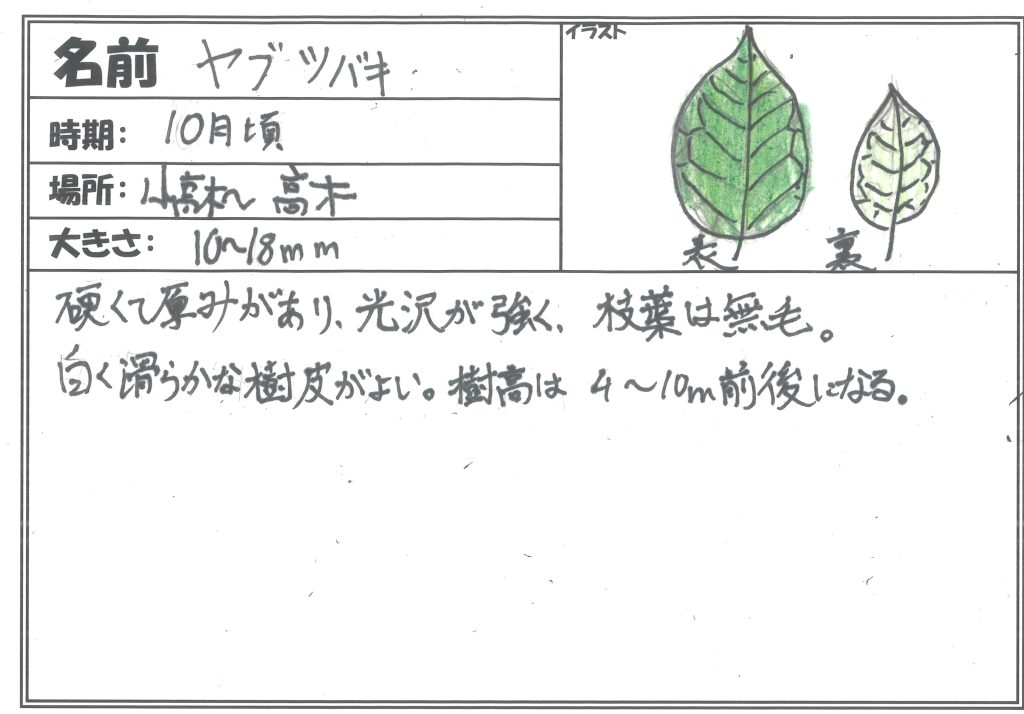 名前 ヤブツバキ
時期: 10月頃
場所: 小高木～高木
大きさ: 10～18mm
イラスト
表 裏
硬くて厚みがあり、光沢が強く、枝葉は無毛。
白く滑らかな樹皮がよい。樹高は 4～10m前後になる。